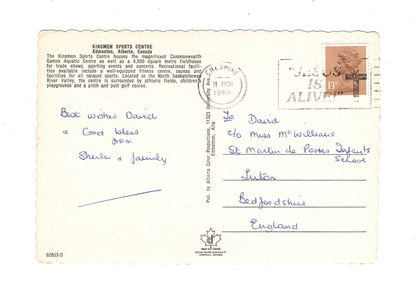 KINSMEN SPORTS CENTRE
Edmonton, Alberta, Canada
The Kinsmen Sports Centre houses the magnificent Commonwealth
Games Aquatic Centre as well as a 4,600 square metre fieldhouse
for trade shows, sporting events and concerts. Recreational facil-
ities available include a well-equipped fitness centre, saunas and
facilities for all racquet sports. Located in the North Saskatchewan
River Valley, the centre is surrounded by athletic fields, children's
playgrounds and a pitch and putt golf course.
Best wishes David
&
from
Sheila & family
62853-D
Pub. by Alberta Color Productions, 11323
Edmonton, Alta
CHESHIRE
JESUS
IS
ALIVE!
13
To David
c/o Miss McWilliams
St Martin de Porres Infants
School
Luton
Bedfordshire
England